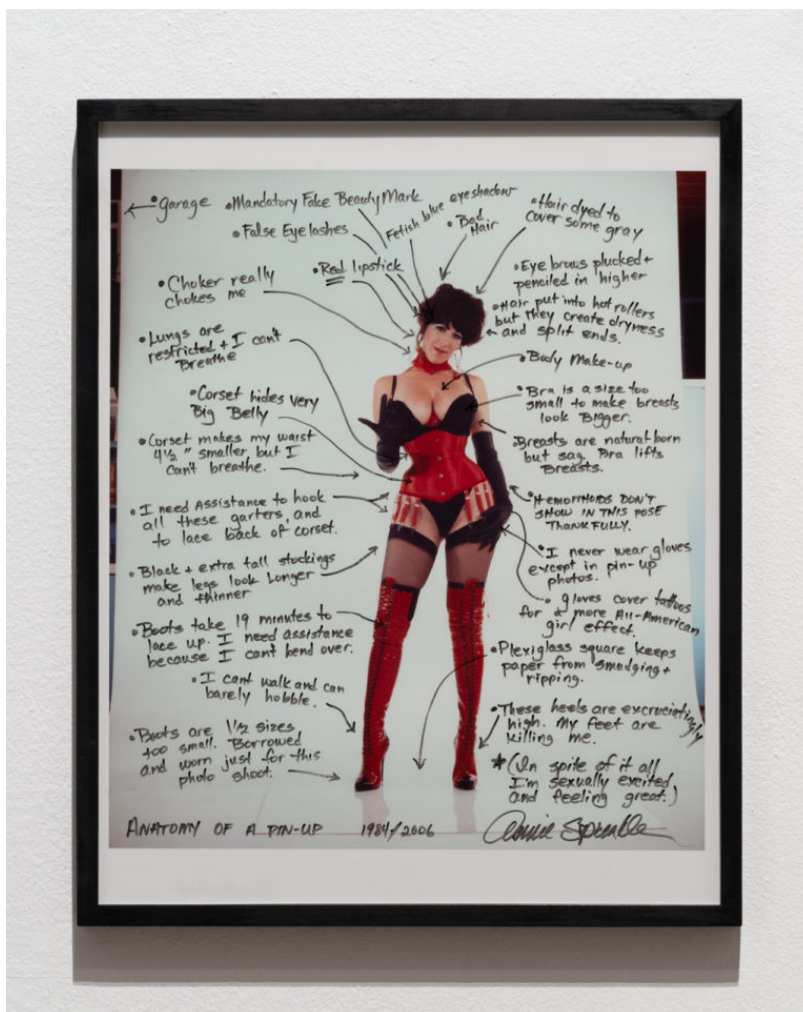 • garage
• Mandatory Fake Beauty Mark
Fetish blue eyeshadow
• False Eyelashes
• Bad
Hair
• Hair dyed to
cover some gray
• Red lipstick
• Choker really
chokes me
• Eye brows plucked +
penciled in higher
• Hair put into hot rollers
but they create dryness
and split ends.
• Lungs are
restricted + I can't
Breathe
• Body Make-up
• Corset hides very
Big Belly
• Bra is a size too
small to make breasts
look Bigger.
• Corset makes my waist
4½" smaller, but I
can't breathe.
• Breasts are natural born
but sag. Bra lifts
Breasts.
• I need Assistance to hook
all these garters, and
to lace back of corset.
• HEMORRHOIDS DON'T
SHOW IN THIS POSE
THANKFULLY.
• Black + extra tall stockings
make legs look Longer
and thinner
• I never wear gloves
except in pin-up
photos.
• gloves cover tattoos
for a more All-American
girl effect.
• Boots take 19 minutes to
lace up. I need assistance
because I can't bend over.
• Plexiglass square keeps
paper from smudging +
ripping.
• I cant walk and can
barely hobble.
• These heels are excruciatingly
high. My feet are
killing me.
• Boots are 1½ sizes
too small. Borrowed
and worn just for this
photo shoot.
* (In spite of it all
I'm sexually excited
and feeling great.)
ANATOMY OF A PIN-UP 1984/2006 Annie Sprinkle